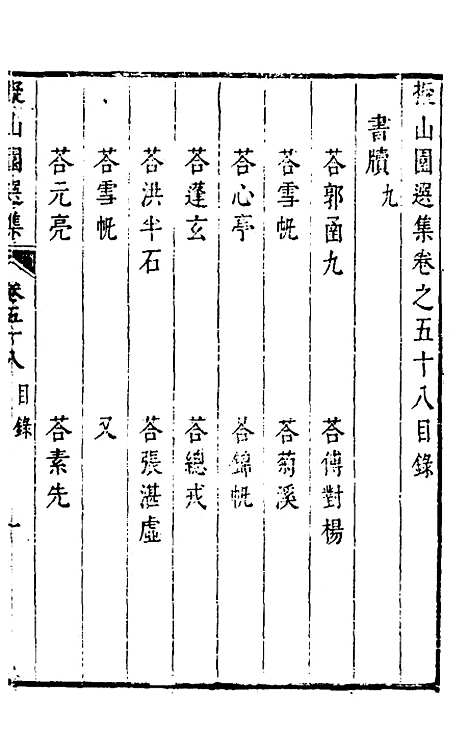 擬山園選集卷之五十八目錄
書牘九
荅郭函九 荅傅對楊
荅雪帆 荅菊溪
荅心亭 荅錦帆
荅蓬玄 荅總戎
荅洪半石 荅張湛虛
荅雪帆 又
荅元亮 荅素先
擬山園選集 卷五十八 目錄 一